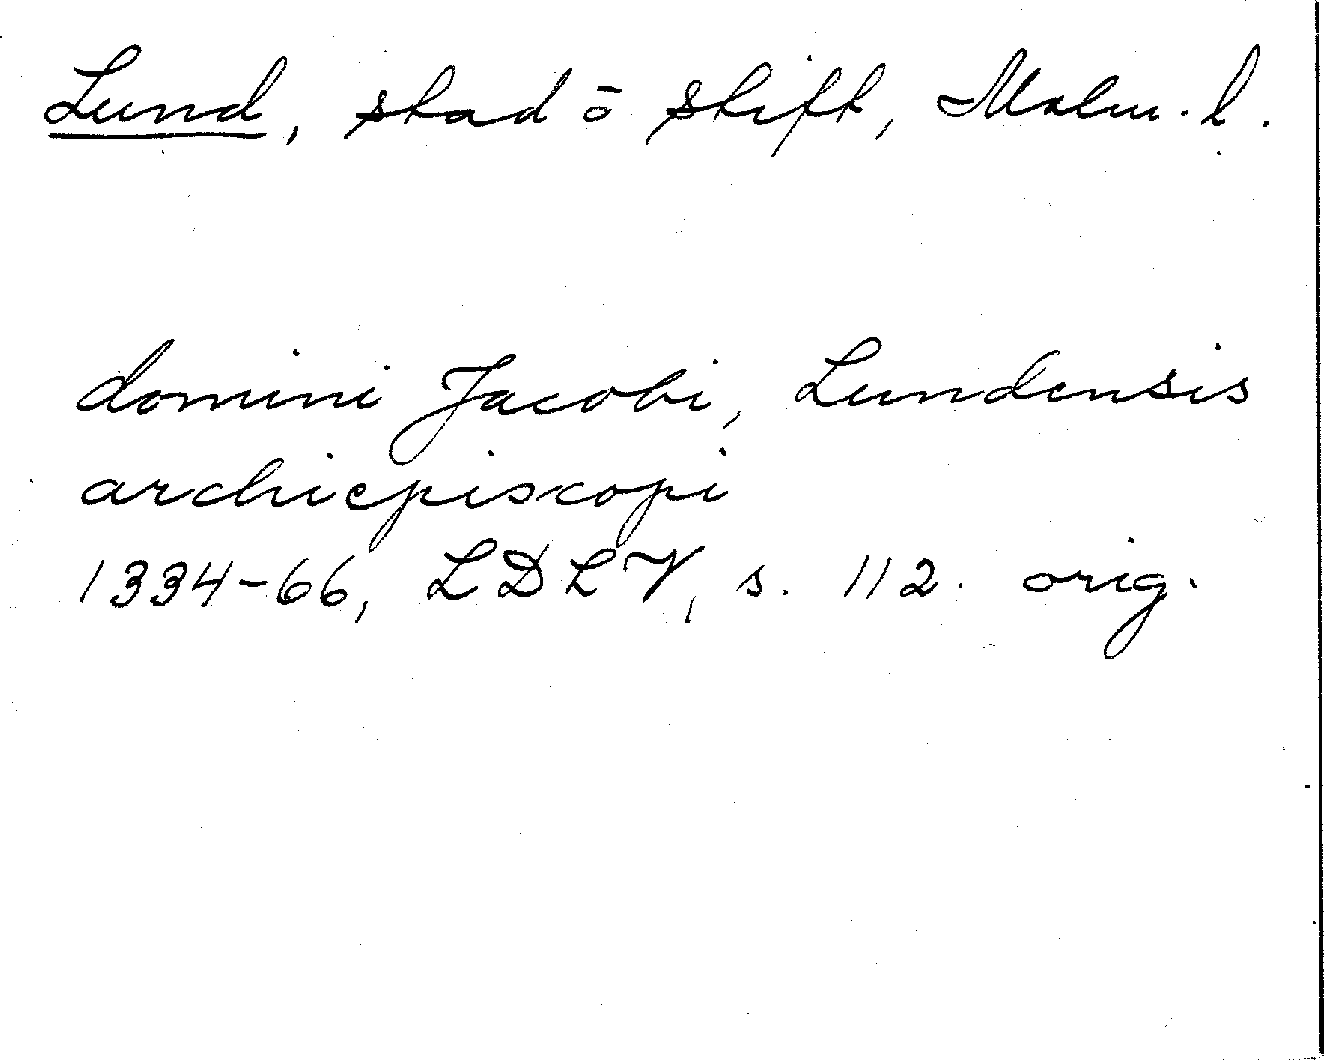 Lund, stad ō stift, Malm. l.
domini Jacobi, Lundensis
archiepiscopi
1334-66, LDLV, s. 112. orig.